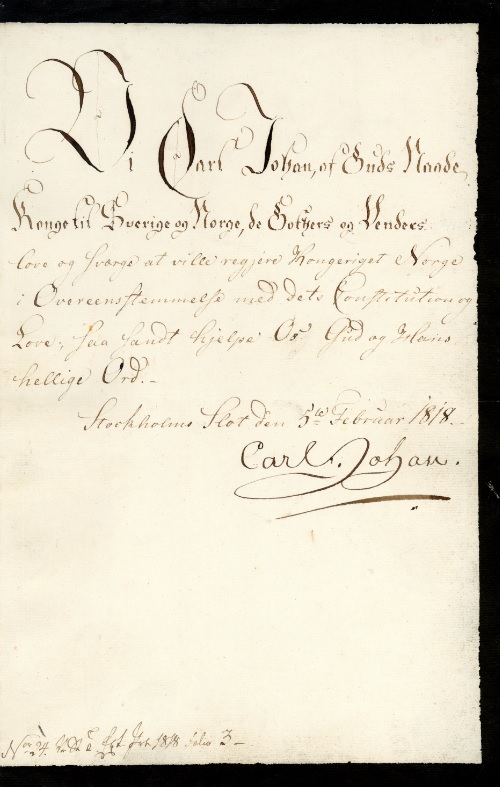 Vi Carl Johan, af Guds Naade,
Konge til Sverige og Norge, de Gothers og Venders
love og sværge at ville regjere Kongeriget Norge
i Overeensstemmelse med dets Constitution og
Love; saa sandt hjelpe Os Gud og Hans
hellige Ord.-
Stockholms Slot den 5te Februar 1818.-
Carl Johan.
1818 3-